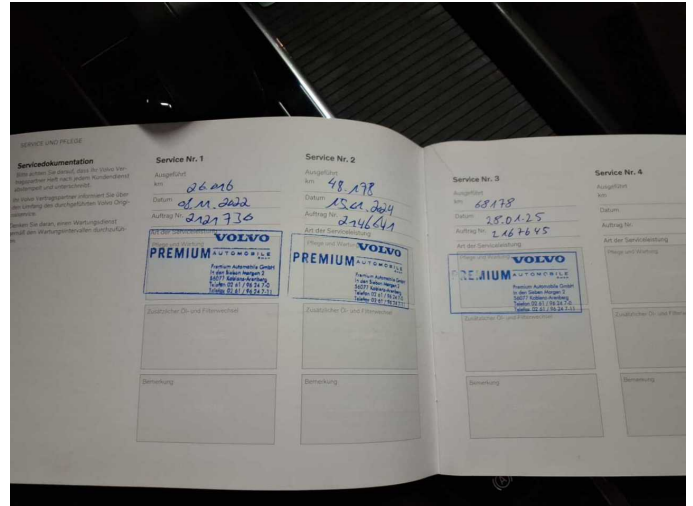 SERVICE UND PFLEGE
Servicedokumentation
Bitte achten Sie darauf, dass Ihr Volvo Ver-
tragspartner Heft nach jedem Kundendienst
abstempelt und unterschreibt.
Ihr Volvo Vertragspartner informiert Sie über
den Umfang des durchgeführten Volvo Origi-
nalservice.
Denken Sie daran, einen Wartungsdienst
gemäß den Wartungsintervallen durchzufüh-
Service Nr. 1
Ausgeführt
km 26.016
Datum 08.11.2022
Auftrag Nr. 2121736
Art der Serviceleistung
Pflege und Wartung
VOLVO
PREMIUM AUTOMOBILE
Premium Automobile GmbH
In den Sieben Morgen 2
56077 Koblenz-Arenberg
Telefon 02 61 / 96 24 7-0
Telefax 02 61 / 96 24 7-11
Zusätzlicher Öl- und Filterwechsel
Bemerkung
Service Nr. 2
Ausgeführt
km 48.178
Datum 15.01.2024
Auftrag Nr. 2146641
Art der Serviceleistung
Pflege und Wartung
VOLVO
PREMIUM AUTOMOBILE
Premium Automobile GmbH
In den Sieben Morgen 2
56077 Koblenz-Arenberg
Telefon 02 61 / 96 24 7-0
Telefax 02 61 / 96 24 7-11
Zusätzlicher Öl- und Filterwechsel
Bemerkung
Service Nr. 3
Ausgeführt
km 68178
Datum 28.01.25
Auftrag Nr. 2167645
Art der Serviceleistung
Pflege und Wartung
VOLVO
PREMIUM AUTOMOBILE
Premium Automobile GmbH
In den Sieben Morgen 2
56077 Koblenz-Arenberg
Telefon 02 61 / 96 24 7-0
Telefax 02 61 / 96 24 7-11
Zusätzlicher Öl- und Filterwechsel
Bemerkung
Service Nr. 4
Ausgeführt
km
Datum
Auftrag Nr.
Art der Serviceleistung
Pflege und Wartung
Zusätzlicher Öl- und
Bemerkung